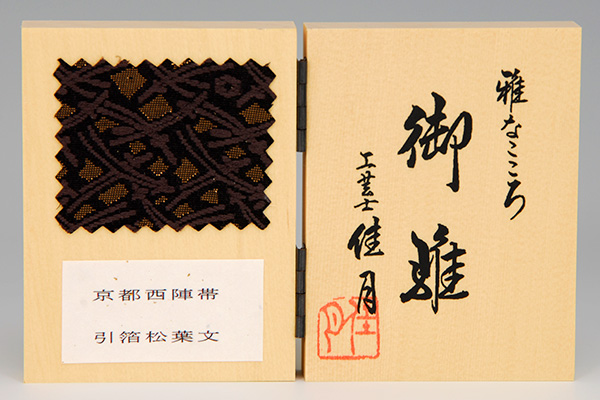 雅なこころ
御雛
工芸士 佳月
佳月
京都西陣帯
引箔松葉文